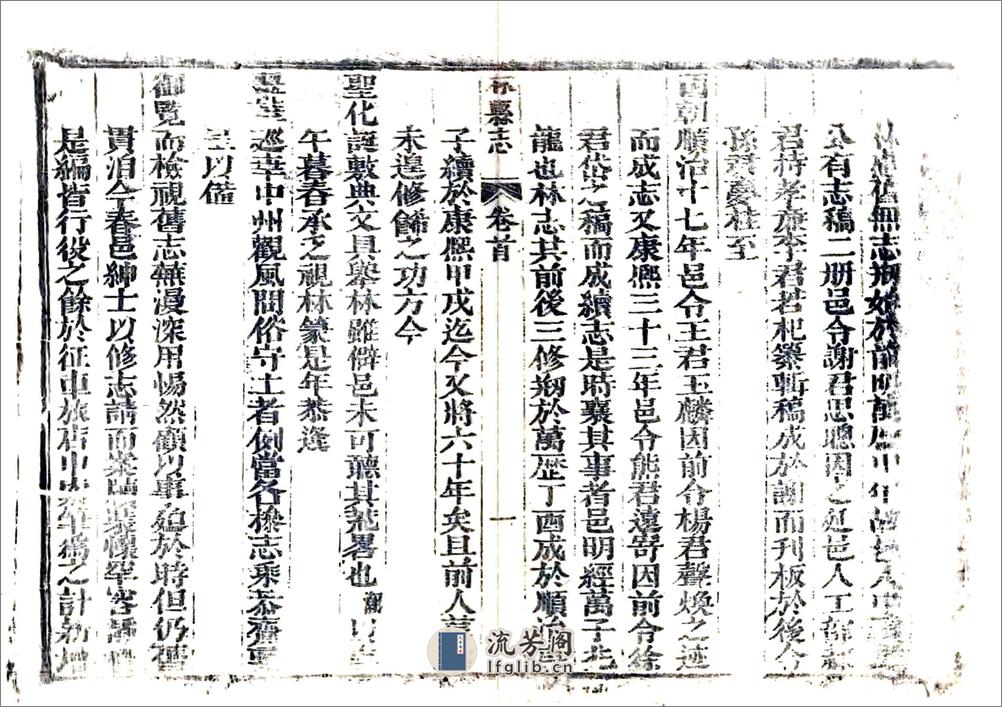 無志刱始於前明萬
公有志稿二册邑令謝君思聰因之延邑人
君持孝廉李君若杞纂輯稿成於謝而刋板於後令
至
朝順治十七年邑令王君玉麟因前令楊君聲煥之迹
而成志又康熙三十三年邑令熊君遠寄因前令徐
君岱之稿而成續志是時襄其事者邑明經萬子兆
龍也林志其前後三修刱於萬歷丁酉成於順治
林縣志
卷首
一
子續於康熙甲戌迄今又將六十年矣且前人
未遑修餙之功方今
聖化誕敷典文具舉林雖僻邑未可聽其荒畧也
午暮春承乏視林篆是年恭逢
巡幸中州觀風問俗守土者例當各捧志乘恭齎
呈以備
御覽而檢視舊志蕪漫深用惕然顧以事迫於時但仍舊
貫洎今春邑紳士以修志請而
是編皆行役之餘於征車旅店中
流芳阁
lfglib.cn